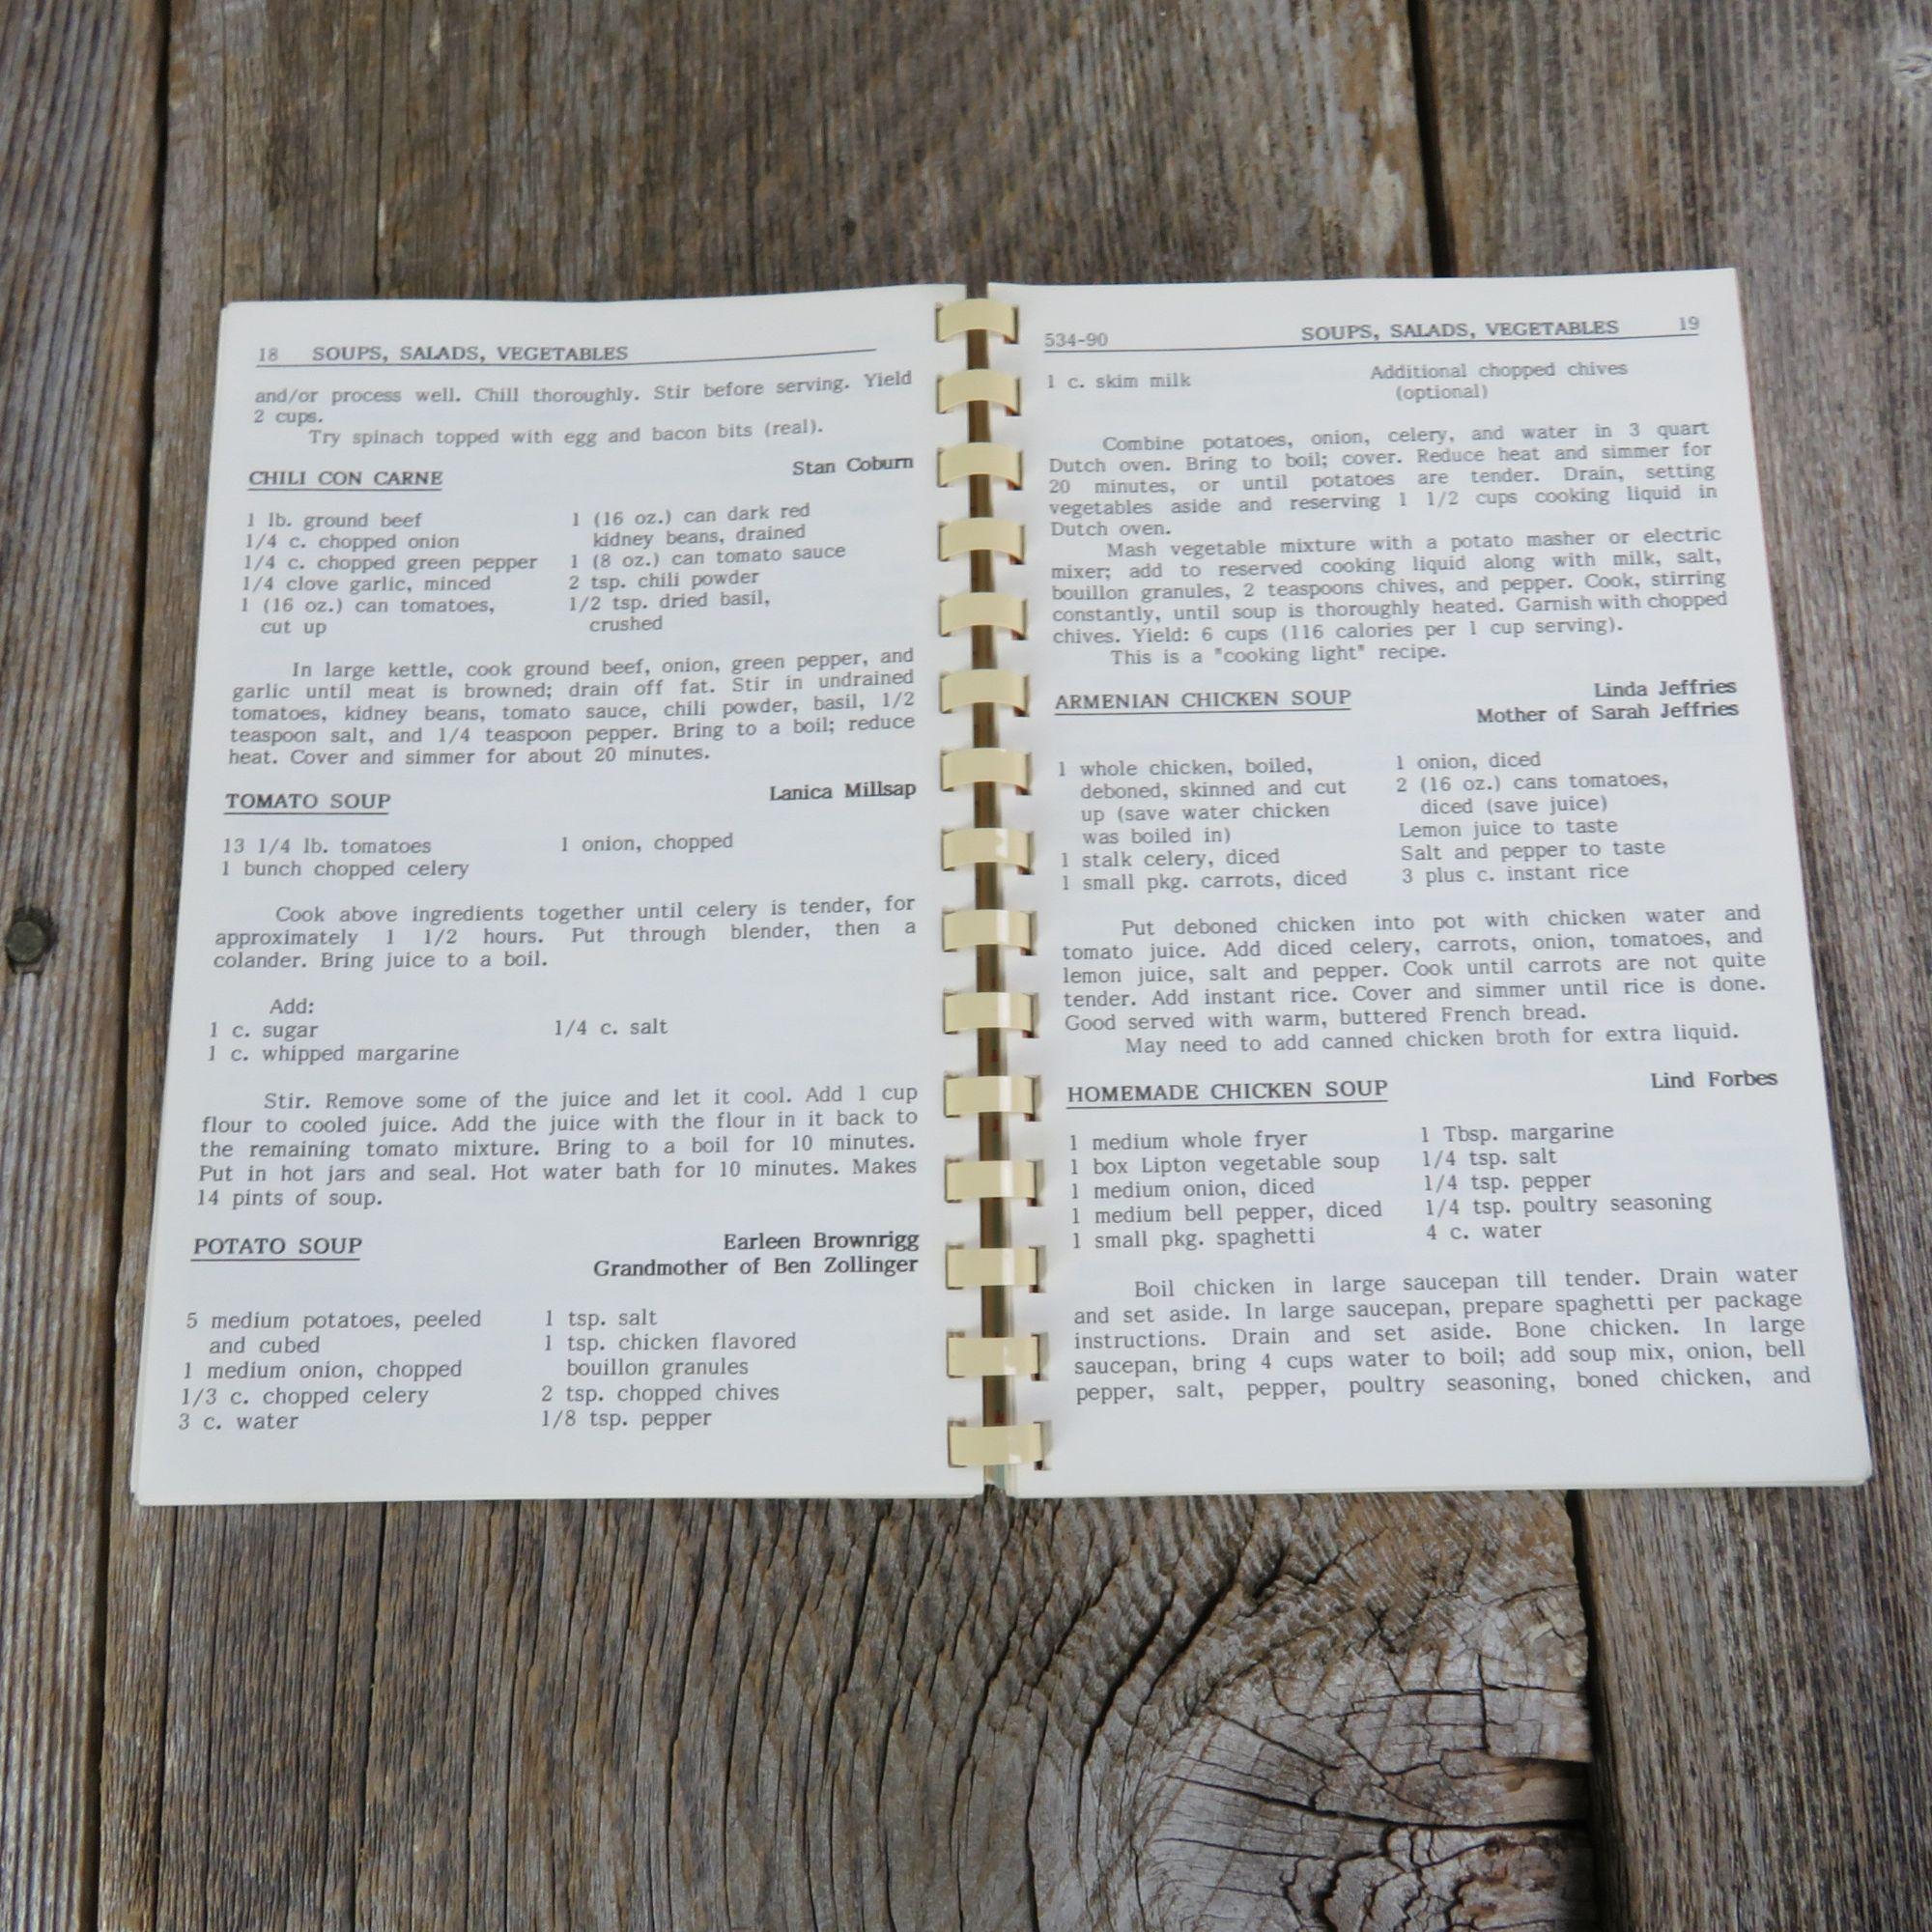 18 SOUPS, SALADS, VEGETABLES
and/or process well. Chill thoroughly. Stir before serving. Yield
2 cups.
Try spinach topped with egg and bacon bits (real).
CHILI CON CARNE Stan Coburn
1 lb. ground beef
1/4 c. chopped onion
1/4 c. chopped green pepper
1/4 clove garlic, minced
1 (16 oz.) can tomatoes,
cut up
1 (16 oz.) can dark red
kidney beans, drained
1 (8 oz.) can tomato sauce
2 tsp. chili powder
1/2 tsp. dried basil,
crushed
In large kettle, cook ground beef, onion, green pepper, and
garlic until meat is browned; drain off fat. Stir in undrained
tomatoes, kidney beans, tomato sauce, chili powder, basil, 1/2
teaspoon salt, and 1/4 teaspoon pepper. Bring to a boil; reduce
heat. Cover and simmer for about 20 minutes.
TOMATO SOUP Lanica Millsap
13 1/4 lb. tomatoes
1 bunch chopped celery
1 onion, chopped
Cook above ingredients together until celery is tender, for
approximately 1 1/2 hours. Put through blender, then a
colander. Bring juice to a boil.
Add:
1 c. sugar
1 c. whipped margarine
1/4 c. salt
Stir. Remove some of the juice and let it cool. Add 1 cup
flour to cooled juice. Add the juice with the flour in it back to
the remaining tomato mixture. Bring to a boil for 10 minutes.
Put in hot jars and seal. Hot water bath for 10 minutes. Makes
14 pints of soup.
POTATO SOUP Earleen Brownrigg
Grandmother of Ben Zollinger
5 medium potatoes, peeled
and cubed
1 medium onion, chopped
1/3 c. chopped celery
3 c. water
1 tsp. salt
1 tsp. chicken flavored
bouillon granules
2 tsp. chopped chives
1/8 tsp. pepper
534-90 SOUPS, SALADS, VEGETABLES 19
1 c. skim milk
Additional chopped chives
(optional)
Combine potatoes, onion, celery, and water in 3 quart
Dutch oven. Bring to boil; cover. Reduce heat and simmer for
20 minutes, or until potatoes are tender. Drain, setting
vegetables aside and reserving 1 1/2 cups cooking liquid in
Dutch oven.
Mash vegetable mixture with a potato masher or electric
mixer; add to reserved cooking liquid along with milk, salt,
bouillon granules, 2 teaspoons chives, and pepper. Cook, stirring
constantly, until soup is thoroughly heated. Garnish with chopped
chives. Yield: 6 cups (116 calories per 1 cup serving).
This is a "cooking light" recipe.
ARMENIAN CHICKEN SOUP Linda Jeffries
Mother of Sarah Jeffries
1 whole chicken, boiled,
deboned, skinned and cut
up (save water chicken
was boiled in)
1 stalk celery, diced
1 small pkg. carrots, diced
1 onion, diced
2 (16 oz.) cans tomatoes,
diced (save juice)
Lemon juice to taste
Salt and pepper to taste
3 plus c. instant rice
Put deboned chicken into pot with chicken water and
tomato juice. Add diced celery, carrots, onion, tomatoes, and
lemon juice, salt and pepper. Cook until carrots are not quite
tender. Add instant rice. Cover and simmer until rice is done.
Good served with warm, buttered French bread.
May need to add canned chicken broth for extra liquid.
HOMEMADE CHICKEN SOUP Lind Forbes
1 medium whole fryer
1 box Lipton vegetable soup
1 medium onion, diced
1 medium bell pepper, diced
1 small pkg. spaghetti
1 Tbsp. margarine
1/4 tsp. salt
1/4 tsp. pepper
1/4 tsp. poultry seasoning
4 c. water
Boil chicken in large saucepan till tender. Drain water
and set aside. In large saucepan, prepare spaghetti per package
instructions. Drain and set aside. Bone chicken. In large
saucepan, bring 4 cups water to boil; add soup mix, onion, bell
pepper, salt, pepper, poultry seasoning, boned chicken, and